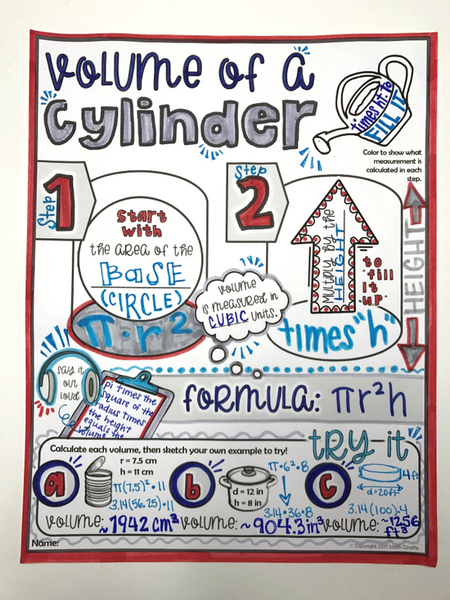 Volume of a
Cylinder
times ht to
FILL IT
Color to show what
measurement is
calculated in each
step.
Step
1
Start
with
the area of the
BASE
(CIRCLE)
π·r²
Step
2
Multiply by the
HEIGHT
to
"fill
it
up"
times "h"
HEIGHT
volume
is measured in
CUBIC units.
say it
out
loud
pi times the
square of the
radius times
the height
equals the
volume
FORMULA: πr²h
TRY it
Calculate each volume, then sketch your own example to try!
a
r = 7.5 cm
h = 11 cm
π(7.5)²·11
3.14(56.25)·11
volume: ~1942 cm³
b
d = 12 in
h = 8 in
π·6²·8
3.14·36·8
volume: ~904.3 in³
c
4ft
d=20ft
3.14(100)4
volume: ~1256 ft³
Name:
© Copyright 2017 Math Giraffe